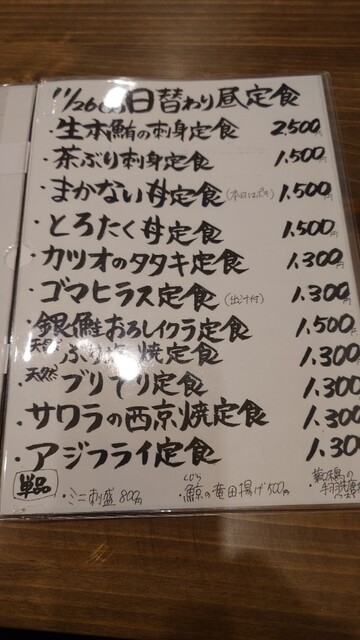 11/26(火)日替わり昼定食
・生本鮪の刺身定食 2,500円
・茶ぶり刺身定食 1,500円
・まかない丼定食(本日はポキ) 1,500円
・とろたく丼定食 1,500円
・カツオのタタキ定食 1,300円
・ゴマヒラス定食(出汁付) 1,300
・銀鮭おろしイクラ定食 1,500
・天然ぶり塩焼定食 1,300
・天然ブリテリ定食 1,300
・サワラの西京焼定食 1,300
・アジフライ定食 1,30
単品 ・ミニ刺盛800円 ・鯨の竜田揚げ500円